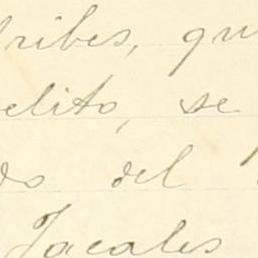 tribes, qu
elito, se
do del
Jacales